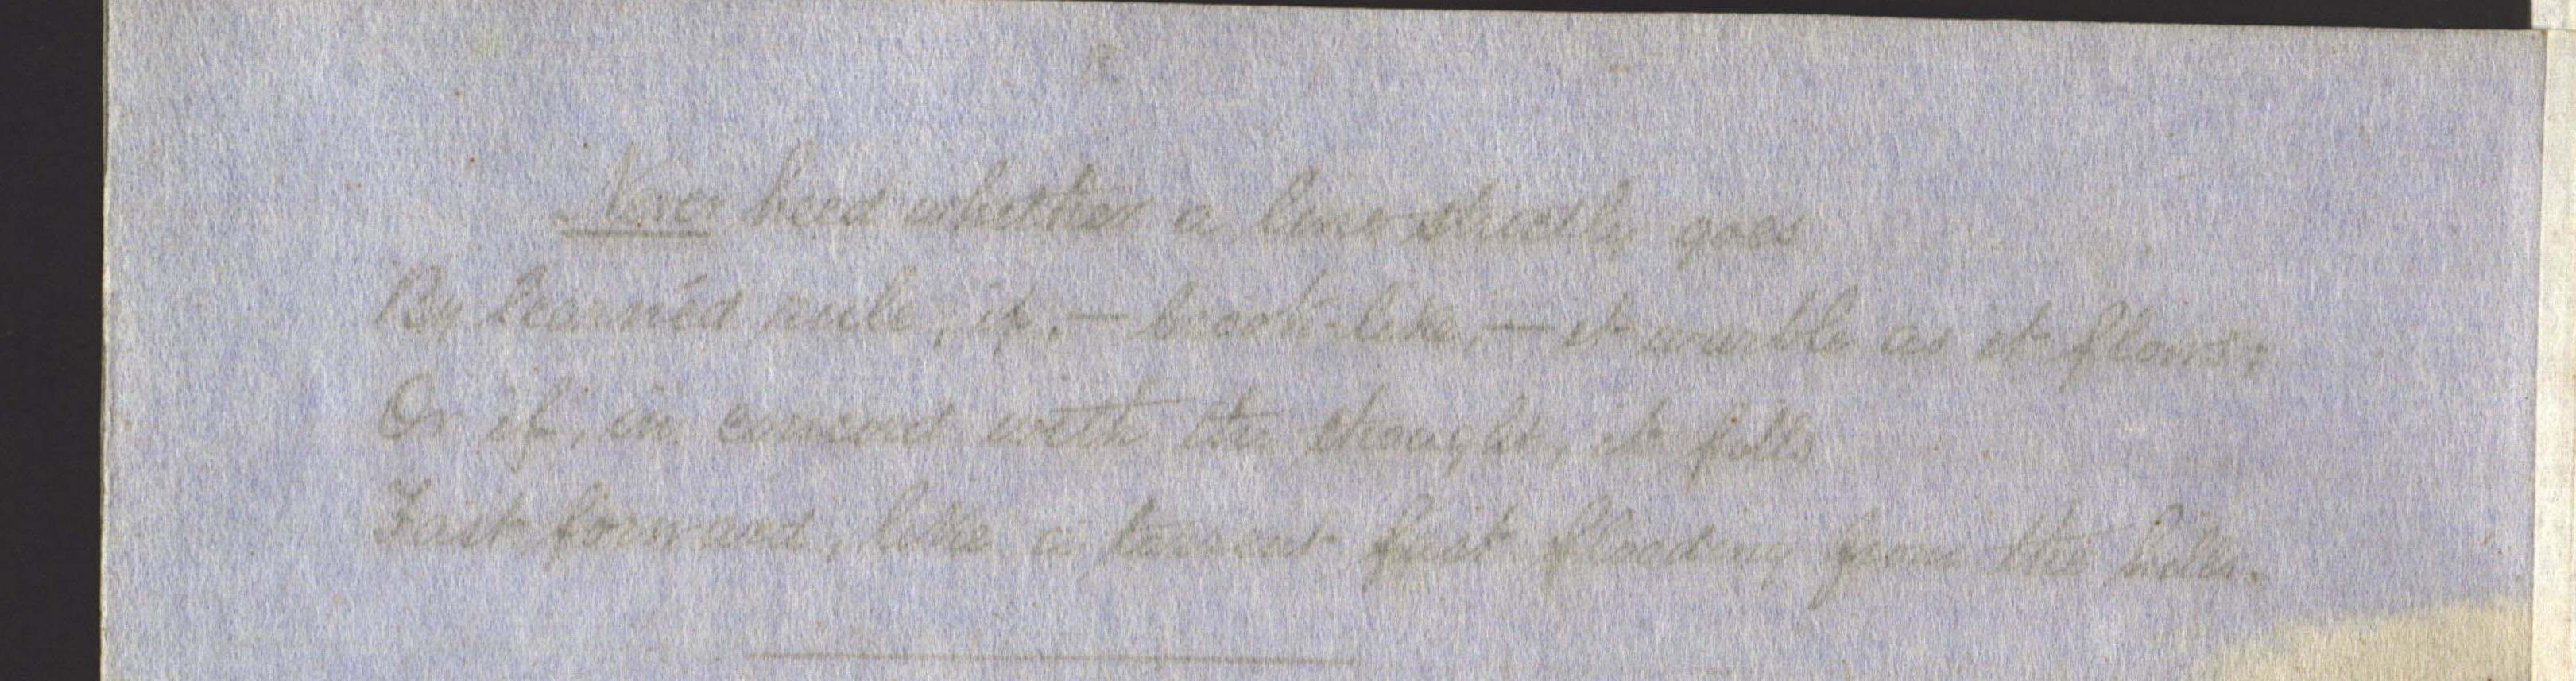 None heed whether a line strictly goes
By learnéd rule, if, — brook-like, — it warble as it flows;
Or if, in concord with the thought, it fills
Fast forward, like a torrent fast flooding from the hills.